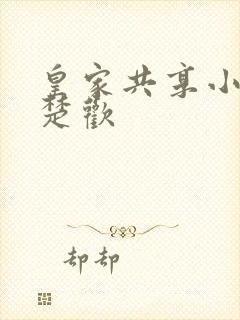 皇家共享小
楚歡
却却